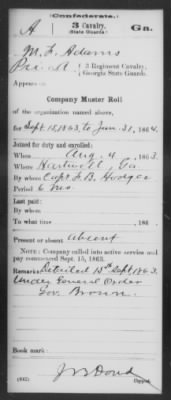 Confederate.
A 3 Cavalry, Ga.
(State Guards.)
M. F. Adams
Pvt. A, 3 Regiment Cavalry,
Georgia State Guards.
Appears on
Company Muster Roll
of the organization named above,
for Sept. 15, 1863, to Jan. 31, 1864.
Joined for duty and enrolled:
When Aug. 4, 1863.
Where Hartwell, Ga.
By whom Capt. F. B. Hodges
Period 6 mos.
Last paid:
By whom
To what time , 186 .
Present or absent Absent
NOTE: Company called into active service and
pay commenced Sept. 15, 1863.
Remarks: Detailed 15th Sept 1863.
Under General Order
Gov. Brown.
Book mark:
(642) Copyist.